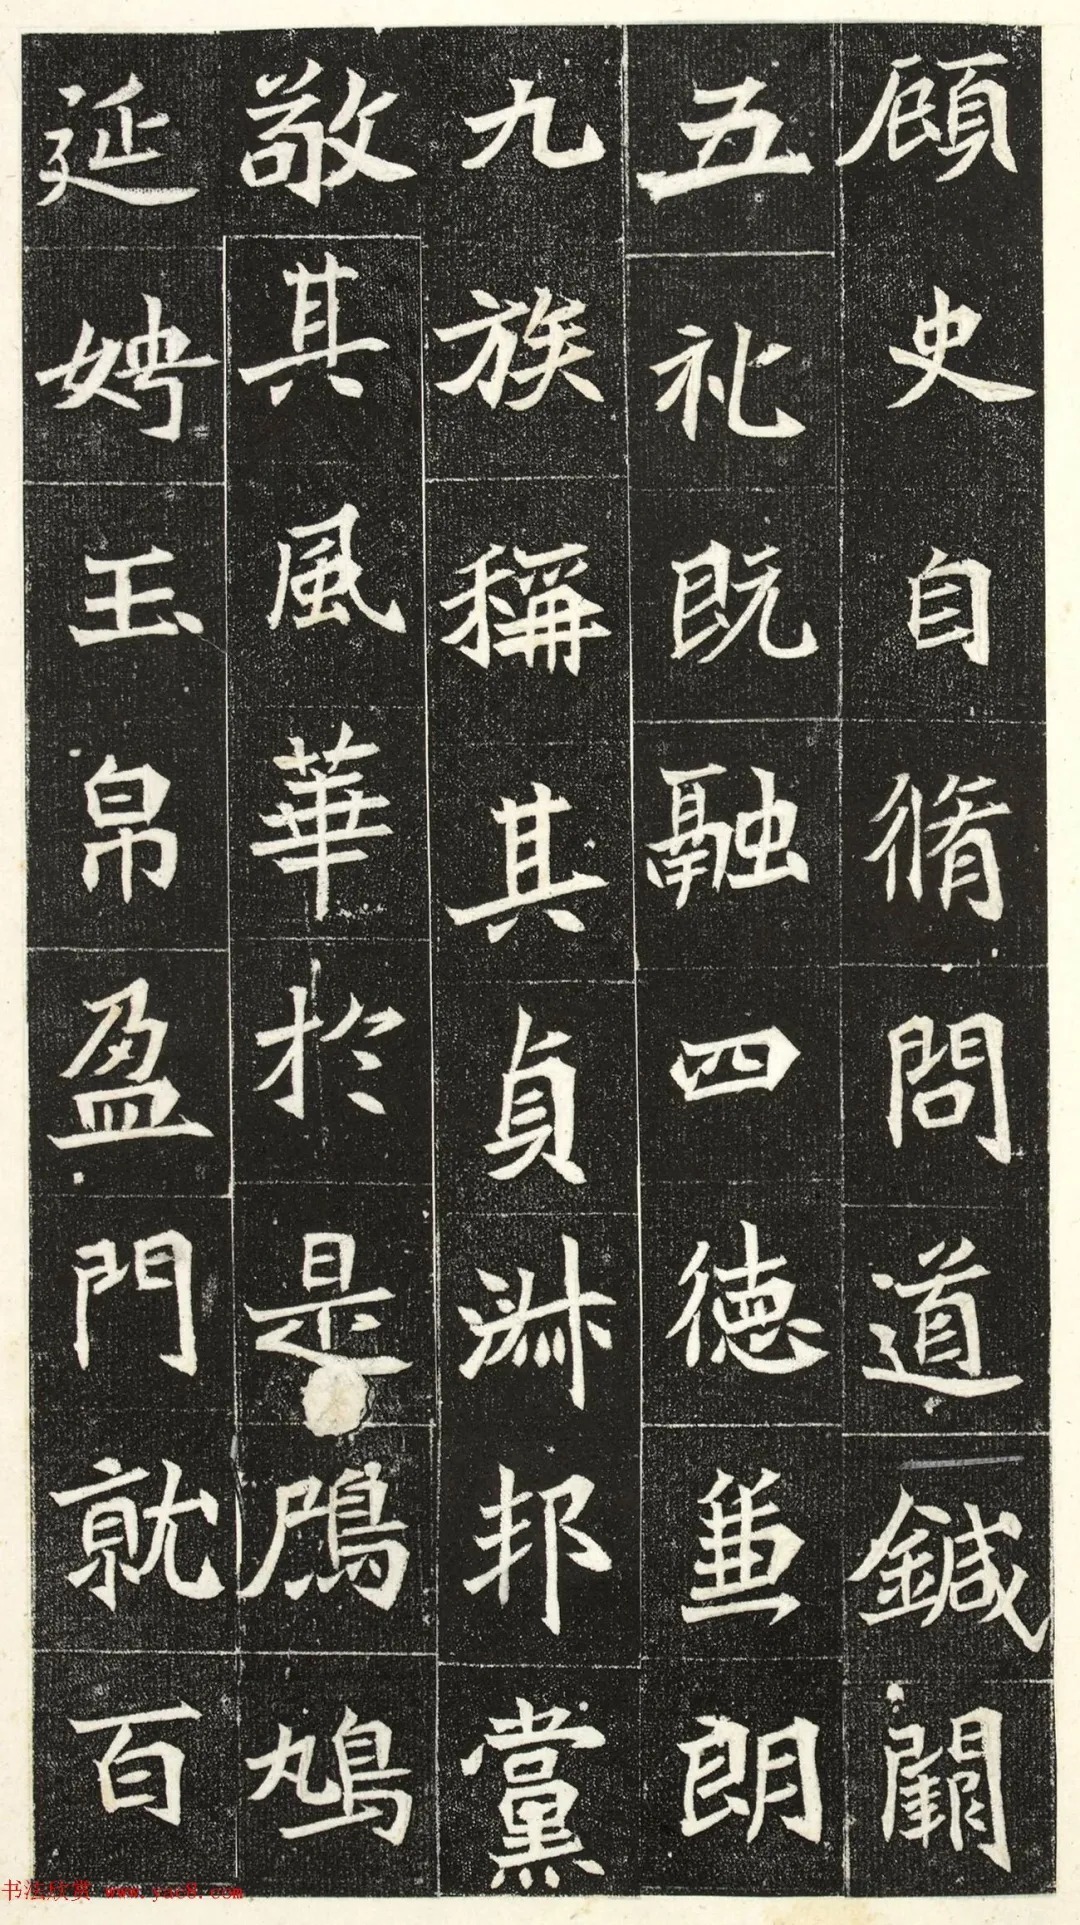 顧史自脩問道鍼闢
五礼既融四德兼朗
九族稱其貞淋邦黨
敬其風華於是鴈鳩
延娉玉帛盈門就百
书法欣赏 www.yac8.com